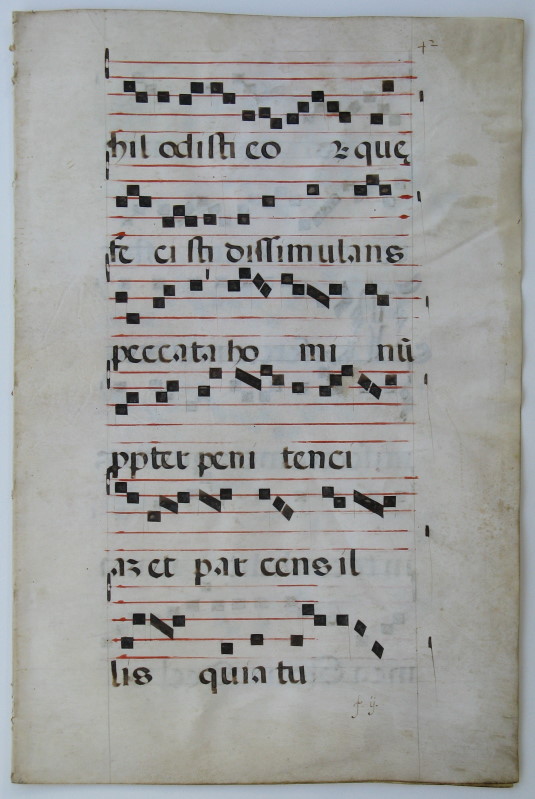 42
hil odisti eo ꝝ quę
fe ci sti dissimulans
peccata ho mi nū
ꝓpter peni tenci
aꝫ et par cens il
lis quia tu